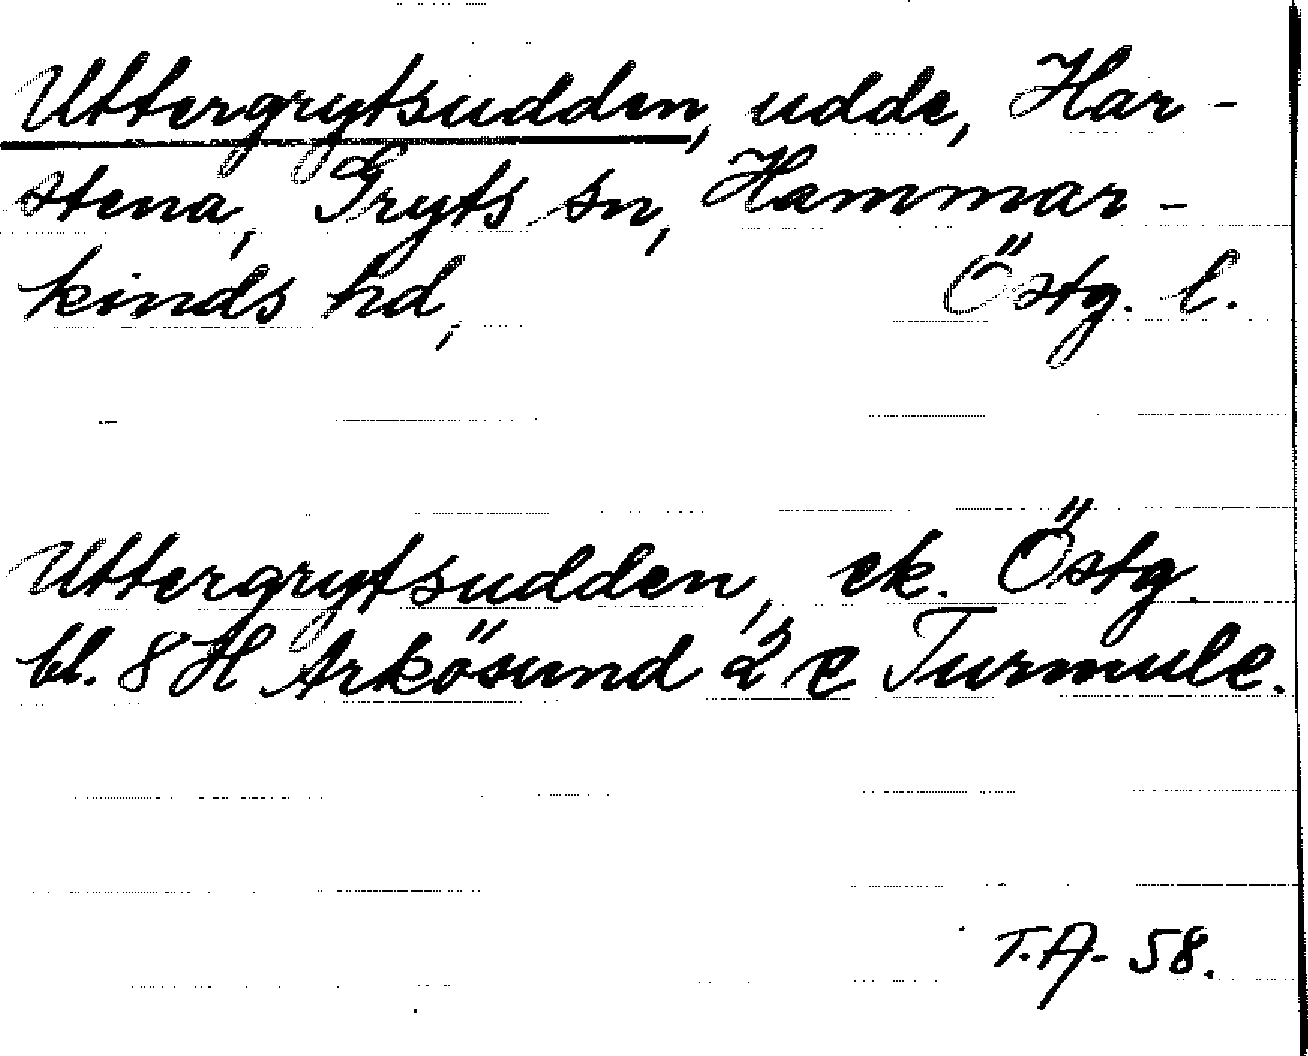 Uttergrytsudden, udde, Har-
stena, Gryts sn, Hammar-
kinds hd, Östg. l.
Uttergrytsudden, ek. Östg.
bl. 8 H Arkösund 2 c Turmulc.
T.A- 58.